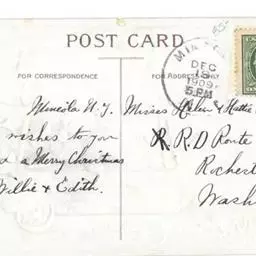 POST CARD
FOR CORRESPONDENCE
FOR ADDRESS ONLY
MIN
DEC
1909
5 PM
Mineola N.Y.
wishes to you
a Merry Christmas
Willie & Edith.
Misses Helen & Hattie
R.R.D Route
Rochest
Wash